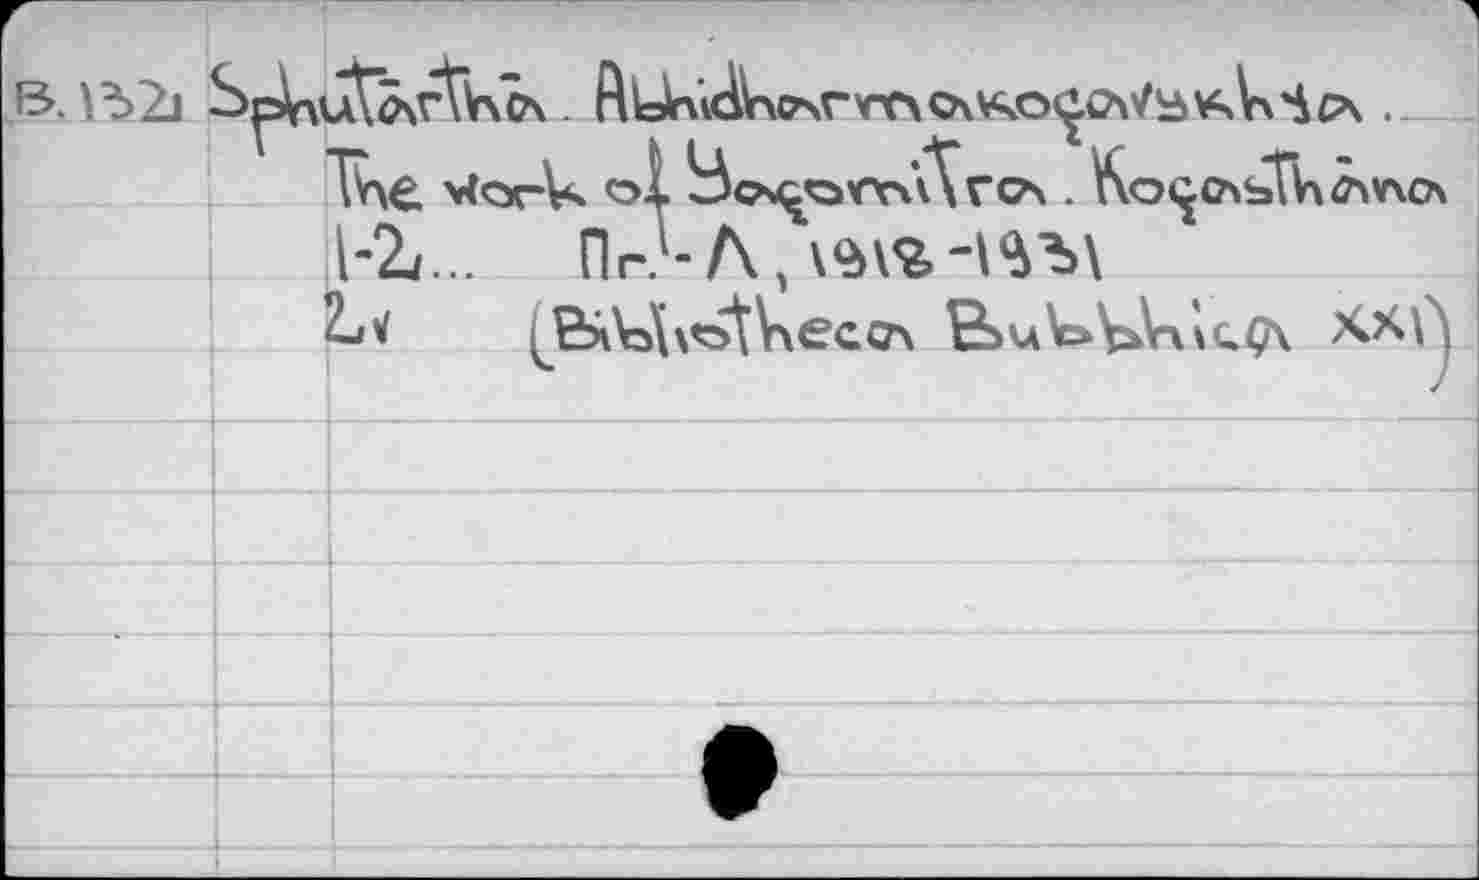 B.132, Sphuṭārthā. Abhidharmakoçavyākhyā.
The work of Yaçomitra. Koçasthāna
1-2,... Пг.¹-Л, 1918-1931
2,v (Bibliotheca Bubbhica XXI)